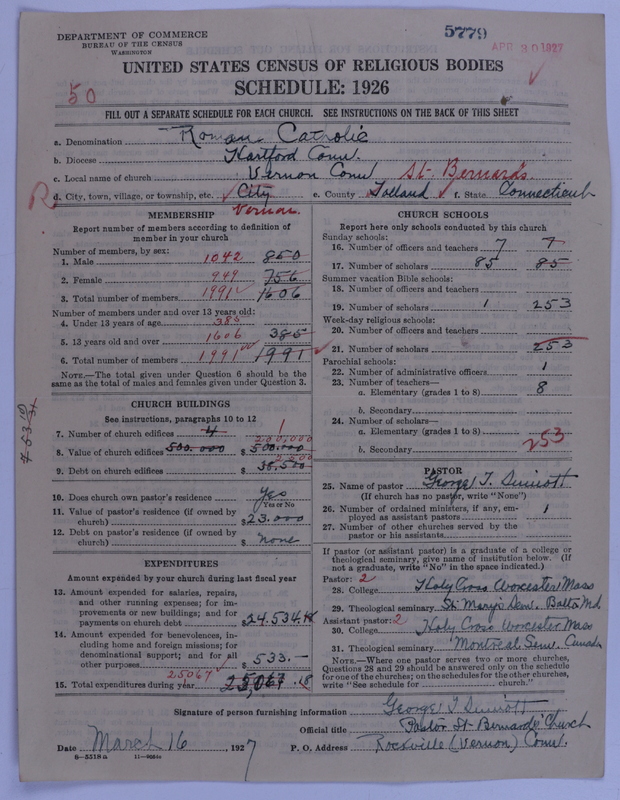 DEPARTMENT OF COMMERCE
BUREAU OF THE CENSUS
WASHINGTON
5779
APR 30 1927
UNITED STATES CENSUS OF RELIGIOUS BODIES
SCHEDULE: 1926
50
FILL OUT A SEPARATE SCHEDULE FOR EACH CHURCH. SEE INSTRUCTIONS ON THE BACK OF THIS SHEET
a. Denomination Roman Catholic
b. Diocese Hartford Conn.
c. Local name of church Vernon Conn St. Bernards.
d. City, town, village, or township, etc. City e. County Tolland f. State Connecticut
Vernon.
MEMBERSHIP
Report number of members according to definition of member in your church
Number of members, by sex:
1. Male 1042 850
2. Female 949 756
3. Total number of members 1991 1606
Number of members under and over 13 years old:
4. Under 13 years of age 385
5. 13 years old and over 1606 385
6. Total number of members 1991 1991
NOTE.—The total given under Question 6 should be the same as the total of males and females given under Question 3.
CHURCH BUILDINGS
See instructions, paragraphs 10 to 12
7. Number of church edifices 4 1
8. Value of church edifices 500.000 $ 500.000 200,000
9. Debt on church edifices $ 38,500
10. Does church own pastor's residence Yes
Yes or No
11. Value of pastor's residence (if owned by church) $ 23.000
12. Debt on pastor's residence (if owned by church) $ none
EXPENDITURES
Amount expended by your church during last fiscal year
13. Amount expended for salaries, repairs, and other running expenses; for improvements or new buildings; and for payments on church debt $ 24.534.18
14. Amount expended for benevolences, including home and foreign missions; for denominational support; and for all other purposes $ 533.—
15. Total expenditures during year 25067 25,067.18
CHURCH SCHOOLS
Report here only schools conducted by this church
Sunday schools:
16. Number of officers and teachers 7 7
17. Number of scholars 85 85
Summer vacation Bible schools:
18. Number of officers and teachers
19. Number of scholars 1 253
Week-day religious schools:
20. Number of officers and teachers
21. Number of scholars 253
Parochial schools:
22. Number of administrative officers 1
23. Number of teachers—
a. Elementary (grades 1 to 8) 8
b. Secondary
24. Number of scholars—
a. Elementary (grades 1 to 8) 253
b. Secondary
PASTOR
25. Name of pastor George T. Sinnott
(If church has no pastor, write "None")
26. Number of ordained ministers, if any, employed as assistant pastors 1
27. Number of other churches served by the pastor or his assistants
If pastor (or assistant pastor) is a graduate of a college or theological seminary, give name of institution below. (If not a graduate, write "No" in the space indicated.)
Pastor: 2
28. College Holy Cross Worcester Mass
29. Theological seminary St. Mary's Sem. Balto Md.
Assistant pastor: 2
30. College Holy Cross Worcester Mass
31. Theological seminary Montreal Sem. Canada
NOTE.—Where one pastor serves two or more churches, Questions 28 and 29 should be answered only on the schedule for one of the churches; on the schedules for the other churches, write "See schedule for ........ church."
Signature of person furnishing information George T Sinnott
Official title Pastor St-Bernards' Church
Date March 16, 1927 P. O. Address Rockville (Vernon) Conn.
6—5518a